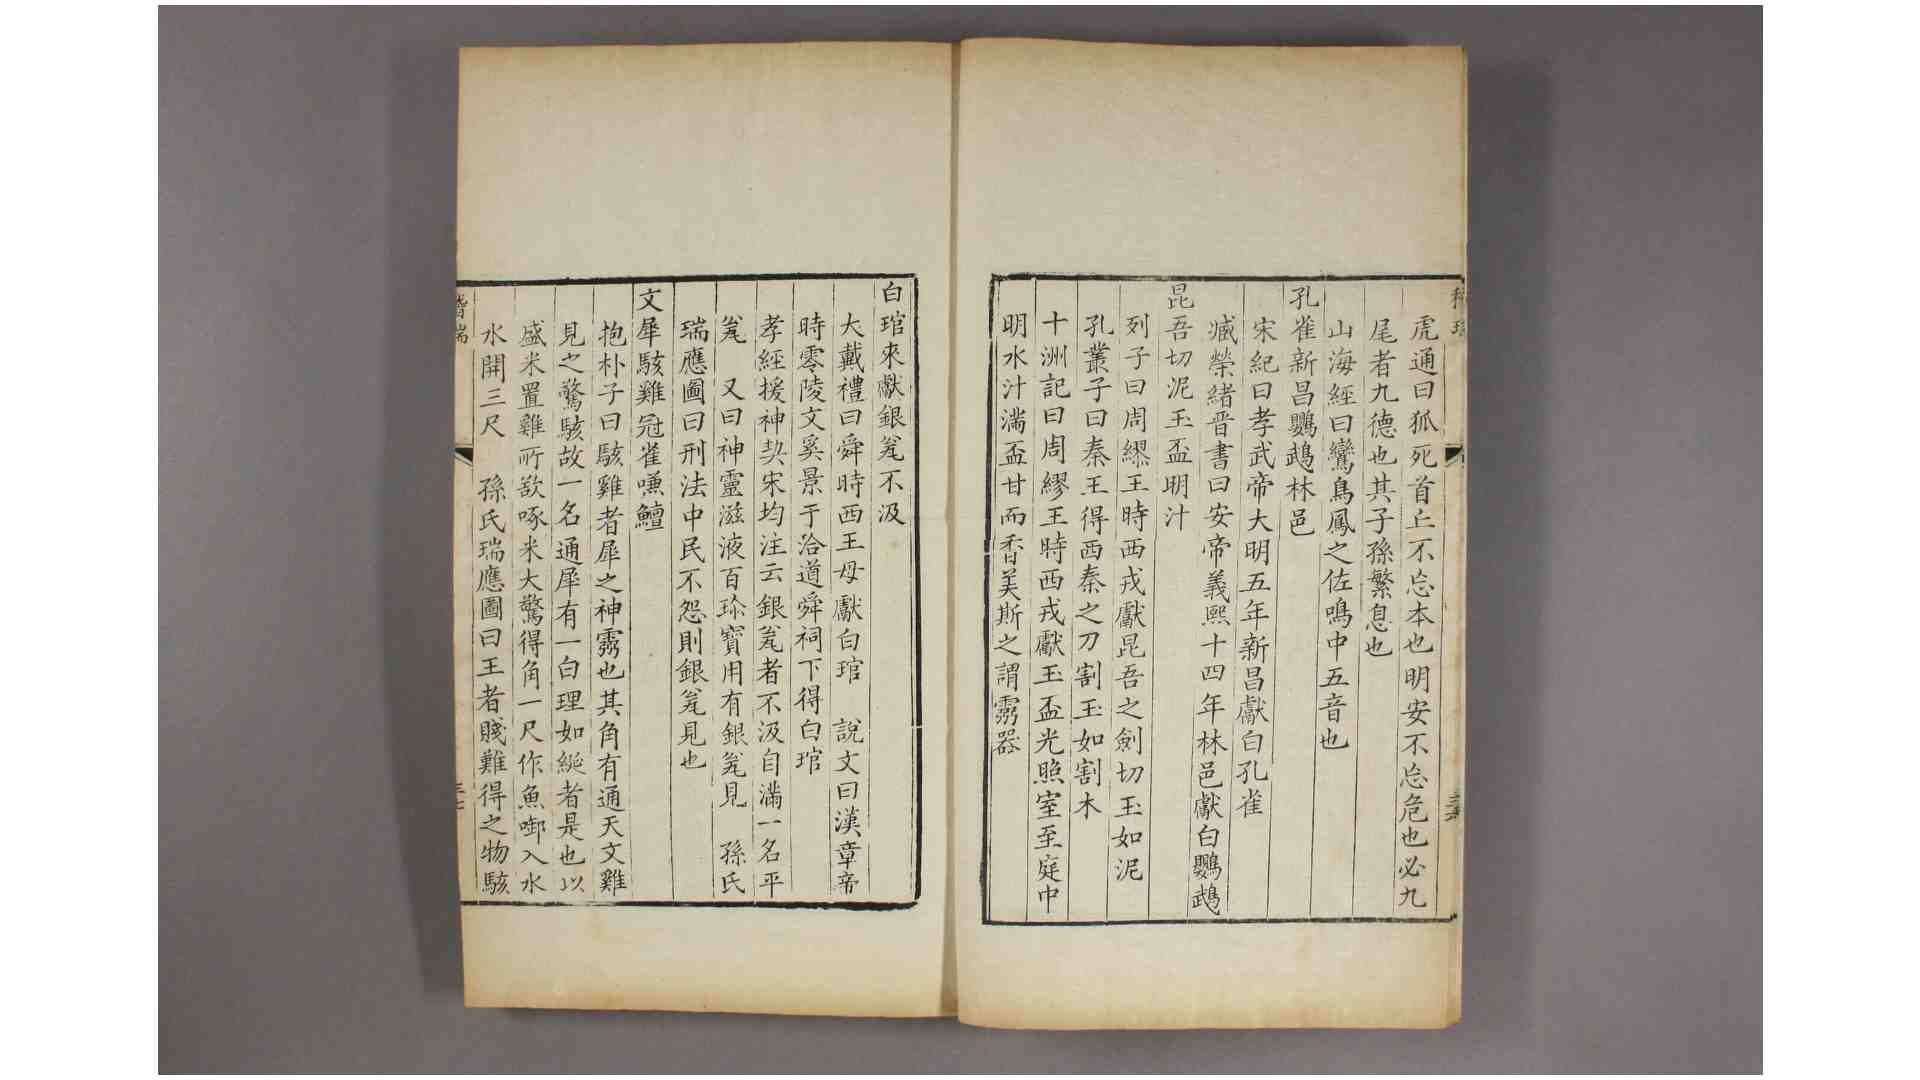 虎通曰狐死首丘不忘本也明安不忘危也必九
尾者九德也其子孫繁息也
山海經曰鸞鳥鳳之佐鳴中五音也
孔雀新昌鸚鵡林邑
宋紀曰孝武帝大明五年新昌獻白孔雀
臧榮緒晉書曰安帝義熙十四年林邑獻白鸚鵡
昆吾切泥玉盃明汁
列子曰周繆王時西戎獻昆吾之劍切玉如泥
孔叢子曰秦王得西秦之刀割玉如割木
十洲記曰周繆王時西戎獻玉盃光照室至庭中
明水汁滿盃甘而香美斯之謂靈器
白琯來獻銀瓮不汲
大戴禮曰舜時西王母獻白琯 說文曰漢章帝
時零陵文奚景于泠道舜祠下得白琯
孝經援神契宋均注云銀瓮者不汲自滿一名平
瓮 又曰神靈滋液百珍寶用有銀瓮見 孫氏
瑞應圖曰刑法中民不怨則銀瓮見也
文犀駭雞冠雀嗛鱣
抱朴子曰駭雞者犀之神靈也其角有通天文雞
見之驚駭故一名通犀有一白理如綖者是也以
盛米置雞所欲啄米大驚得角一尺作魚啣入水
水開三尺 孫氏瑞應圖曰王者賤難得之物駭
稽瑞